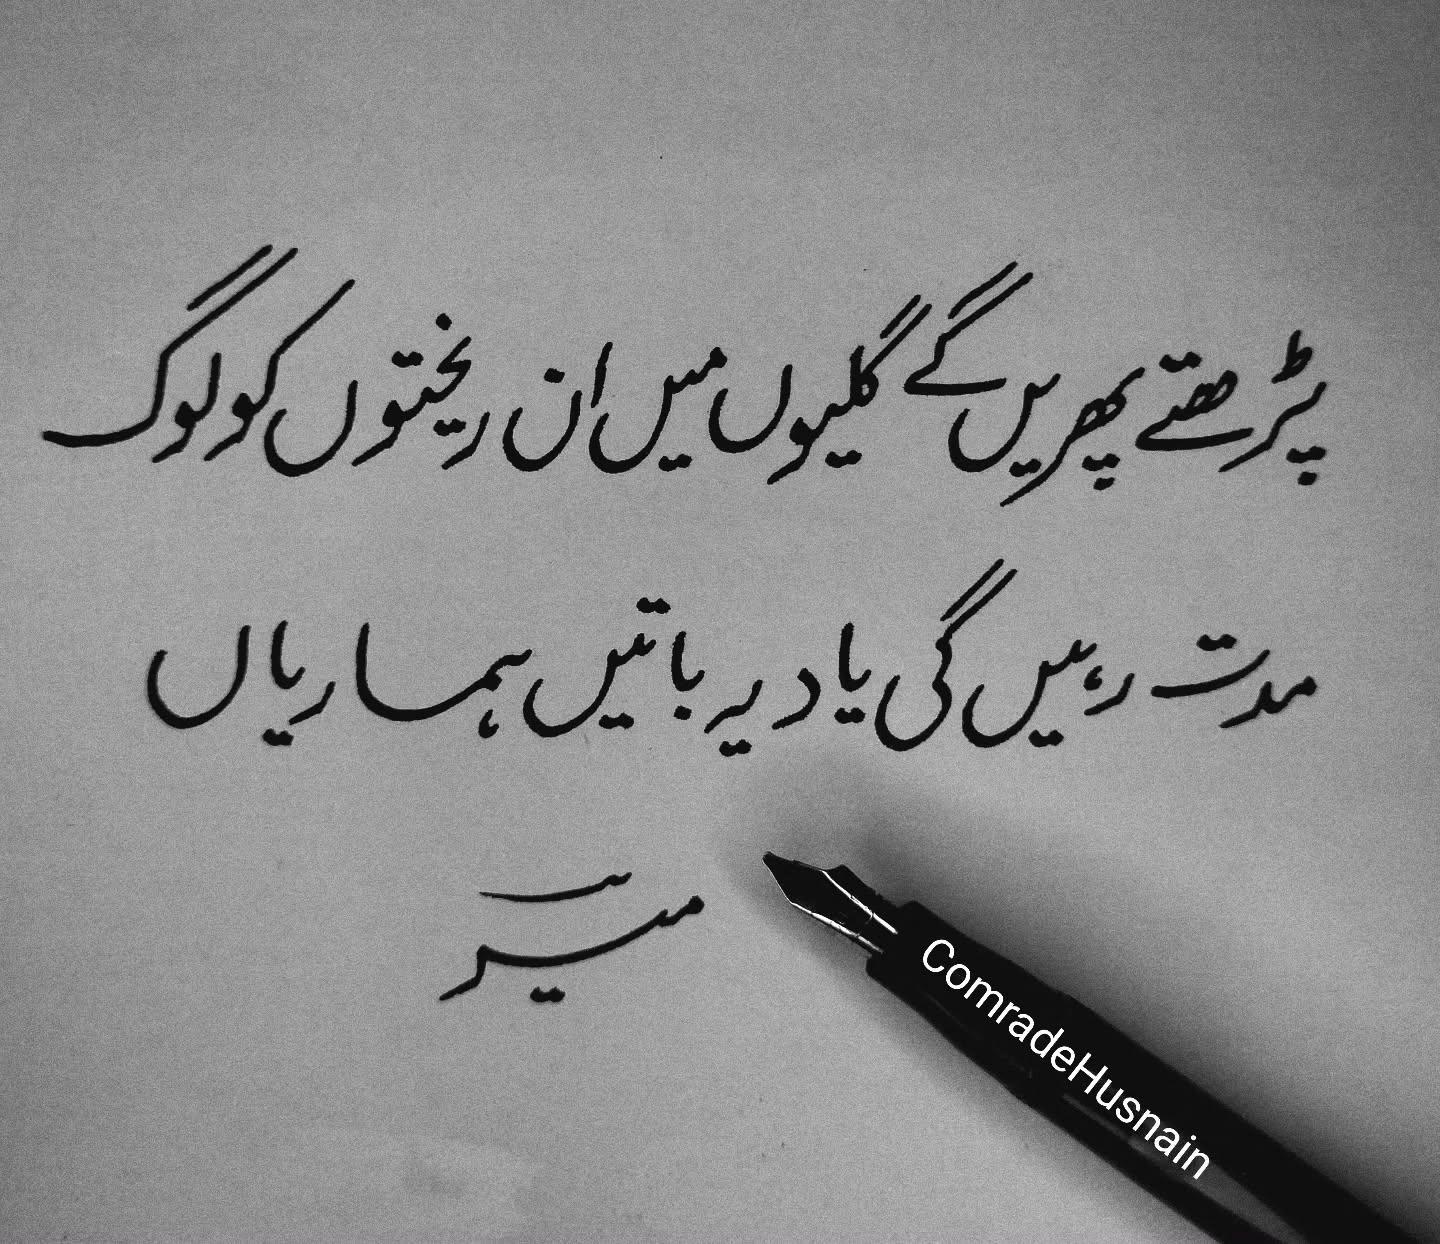 پڑھتے پھریں گے گلیوں میں ان ریختوں کو لوگ
مدت رہیں گی یاد یہ باتیں ہماریاں
میر
ComradeHusnain